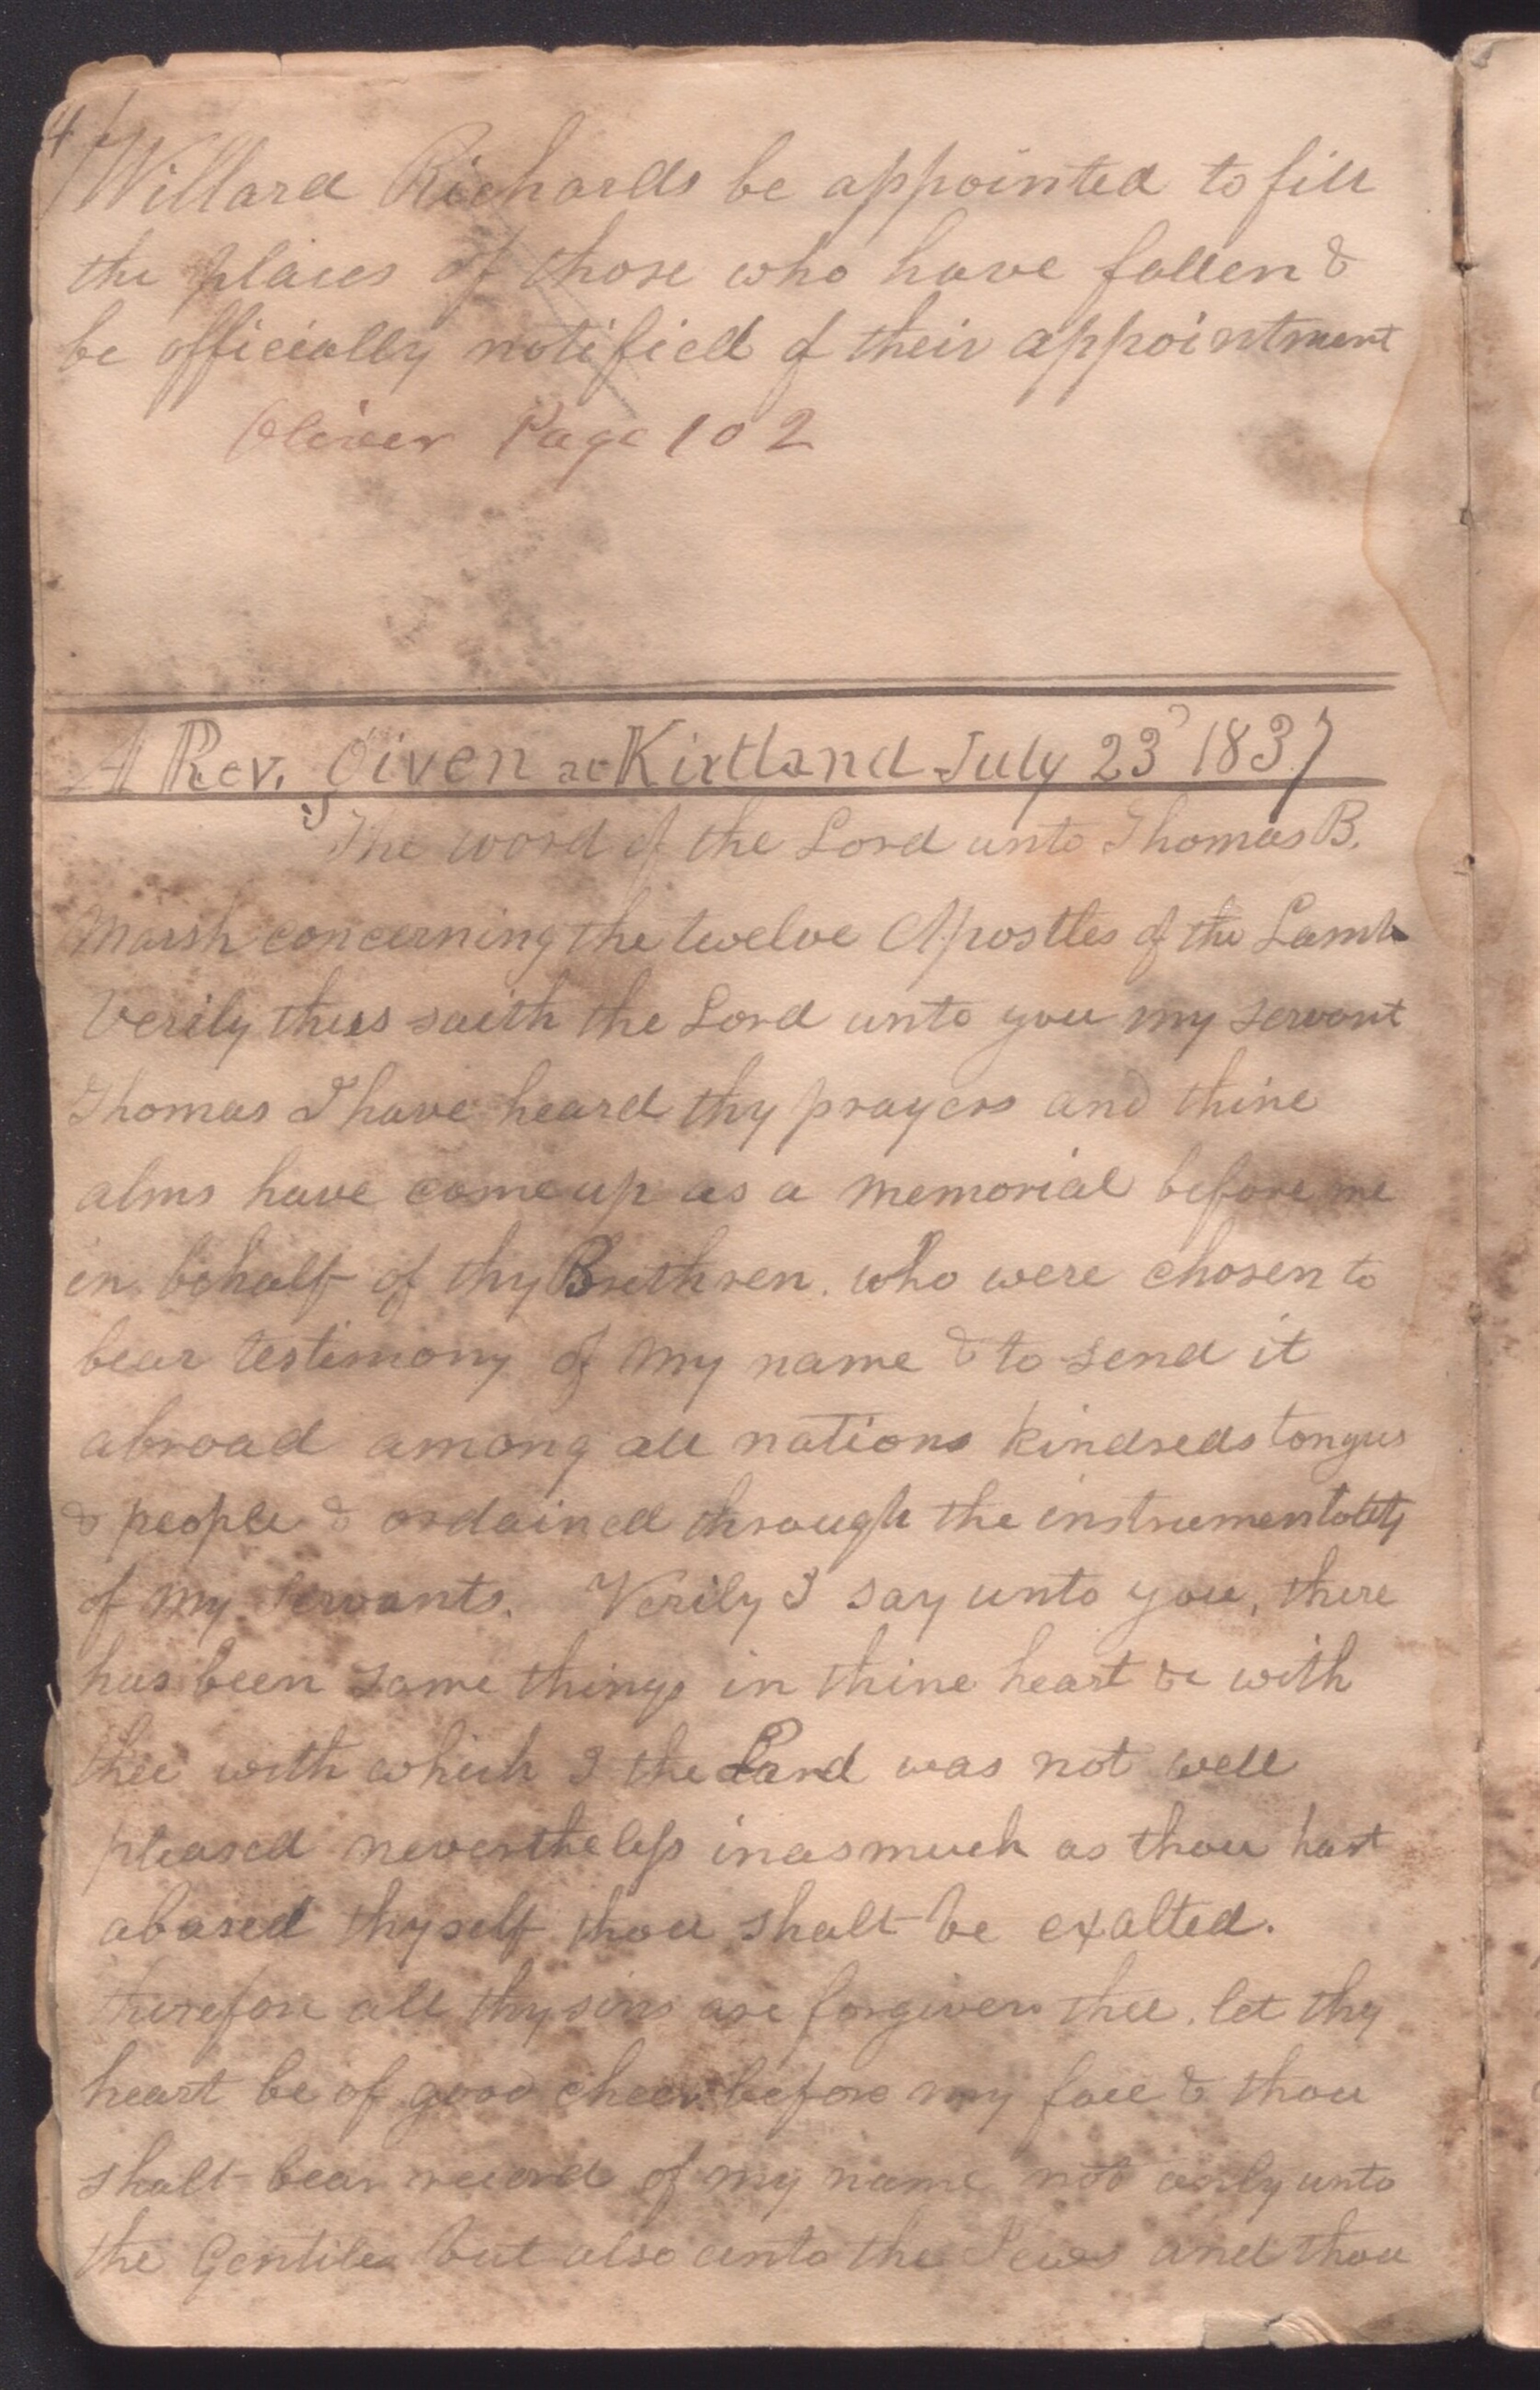 4
Willard Richards be appointed to fill
the places of those who have fallen &
be officially notified of their appointment
Oliver Page 102
A Rev. Given at Kirtland July 23d 1837
The word of the Lord unto Thomas B.
Marsh concerning the twelve Apostles of the Lamb
Verily thus saith the Lord unto you my servant
Thomas I have heard thy prayers and thine
alms have come up as a memorial before me
in behalf of thy Brethren. who were chosen to
bear testimony of my name & to send it
abroad among all nations kindreds tongues
& people & ordained through the instrumentality
of my servants. Verily I say unto you, there
has been some things in thine heart & with
thee with which I the Lord was not well
pleased nevertheless inasmuch as thou hast
abased thyself thou shalt be exalted.
therefore all thy sins are forgiven thee. let thy
heart be of good cheer before my face & thou
shalt bear record of my name not only unto
the Gentiles but also unto the Jews and thou